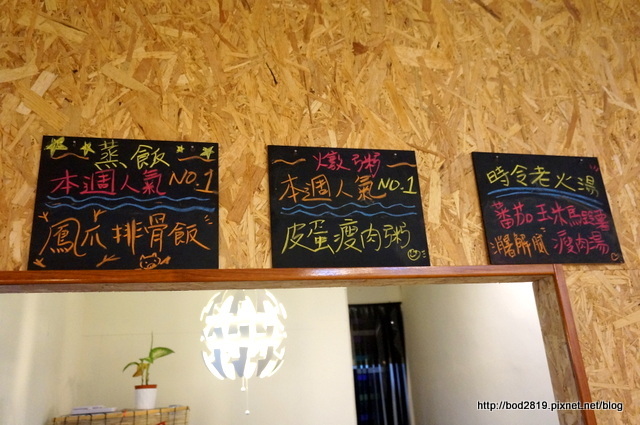 蒸飯
本週人氣 NO.1
鳳爪排骨飯
燉粥
本週人氣 NO.1
皮蛋瘦肉粥
時令老火湯
蕃茄玉米馬鈴薯
瘦肉湯
http://bod2819.pixnet.net/blog